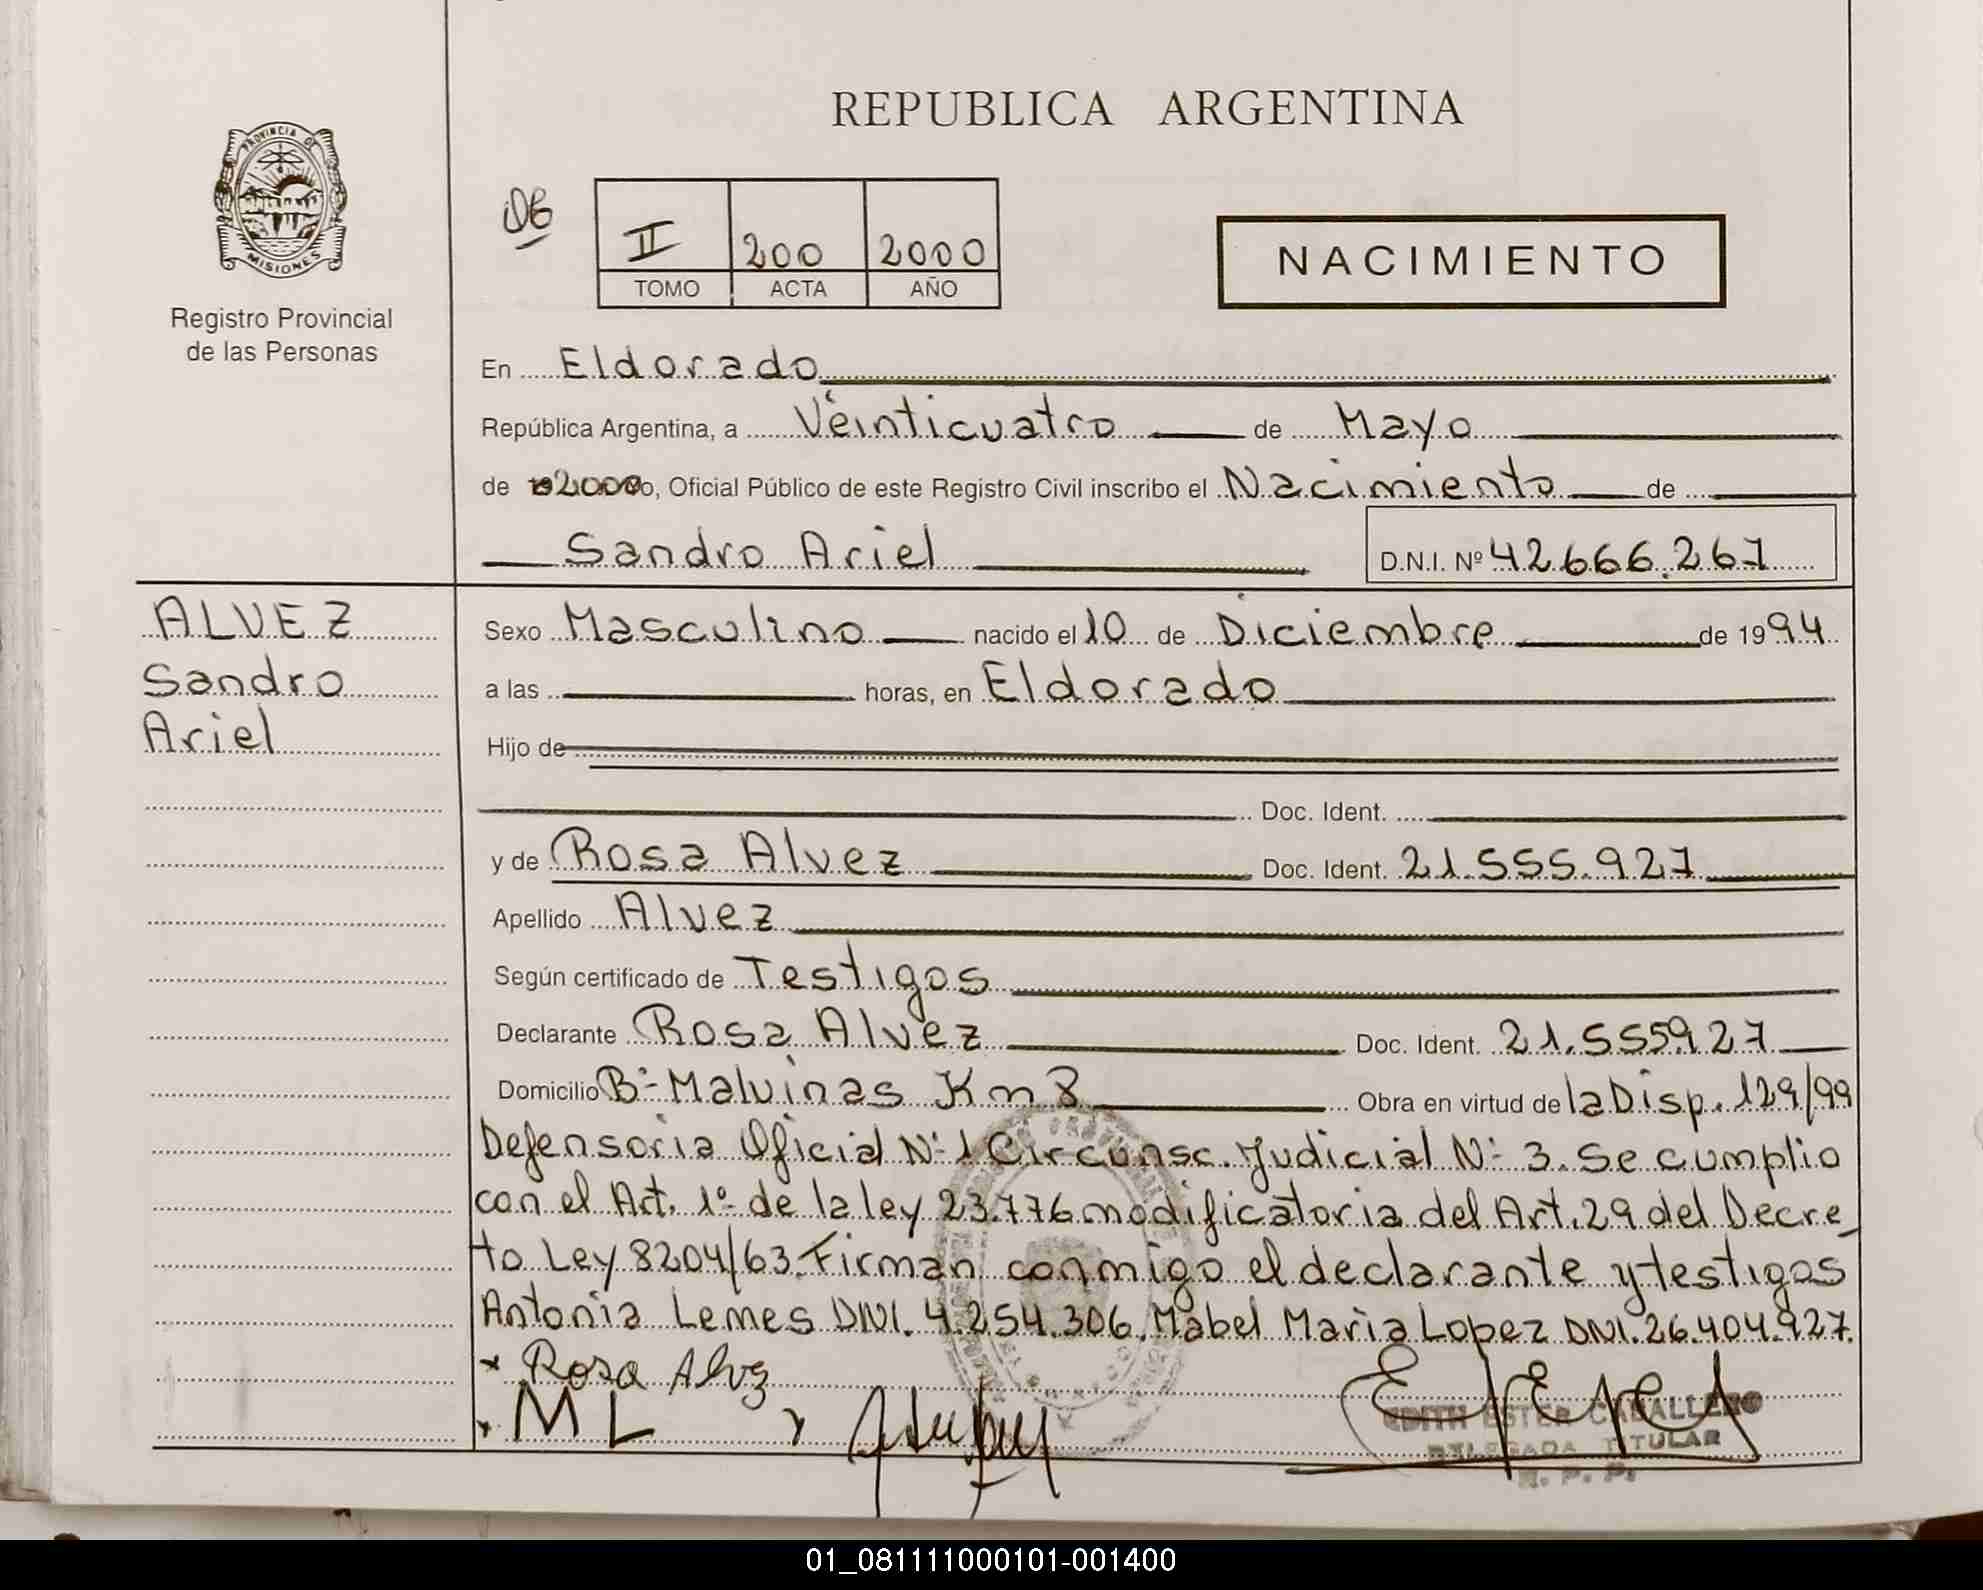 REPUBLICA ARGENTINA
PROVINCIA DE
MISIONES
Registro Provincial
de las Personas
06
II 200 2000
TOMO ACTA AÑO
NACIMIENTO
En Eldorado
República Argentina, a Veinticuatro de Mayo
de 2000 yo, Oficial Público de este Registro Civil inscribo el Nacimiento de
Sandro Ariel D.N.I. Nº 42.666.267
ALVEZ
Sandro
Ariel
Sexo Masculino nacido el 10 de Diciembre de 1994
a las horas, en Eldorado
Hijo de
Doc. Ident.
y de Rosa Alvez Doc. Ident. 21.555.927
Apellido Alvez
Según certificado de Testigos
Declarante Rosa Alvez Doc. Ident. 21.555927
Domicilio Bº Malvinas Km 8 Obra en virtud de la Disp. 129/99
Defensoria Oficial Nº 1 Circunsc. Judicial Nº 3. Se cumplio
con el Art. 1º de la ley 23.776 modificatoria del Art. 29 del Decre_
to Ley 8204/63. Firman conmigo el declarante y testigos
Antonia Lemes DNI. 4.254.306. Mabel Maria Lopez DNI. 26.404.927.
x Rosa Alvz
x M L x
EDITH ESTER CABALLERO
DELEGADA TITULAR
R. P. P.
01_081111000101-001400